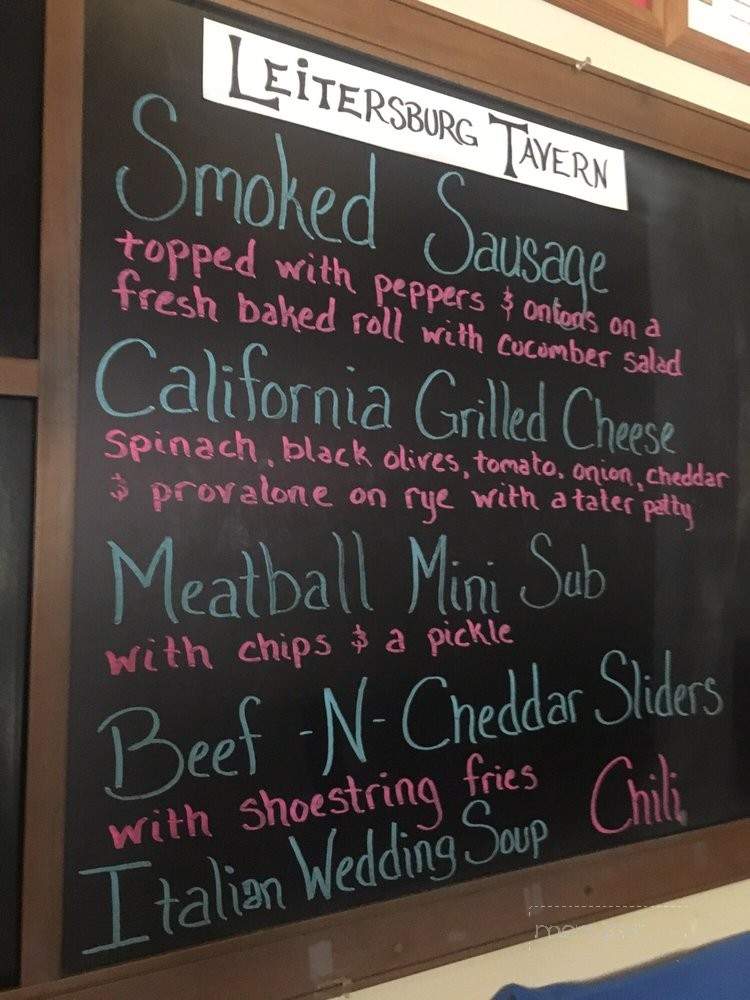 LEITERSBURG TAVERN
Smoked Sausage
topped with peppers & onions on a
fresh baked roll with cucumber salad
California Grilled Cheese
spinach, black olives, tomato, onion, cheddar
& provalone on rye with a tater patty
Meatball Mini Sub
with chips & a pickle
Beef -N- Cheddar Sliders
with shoestring fries Chili
Italian Wedding Soup